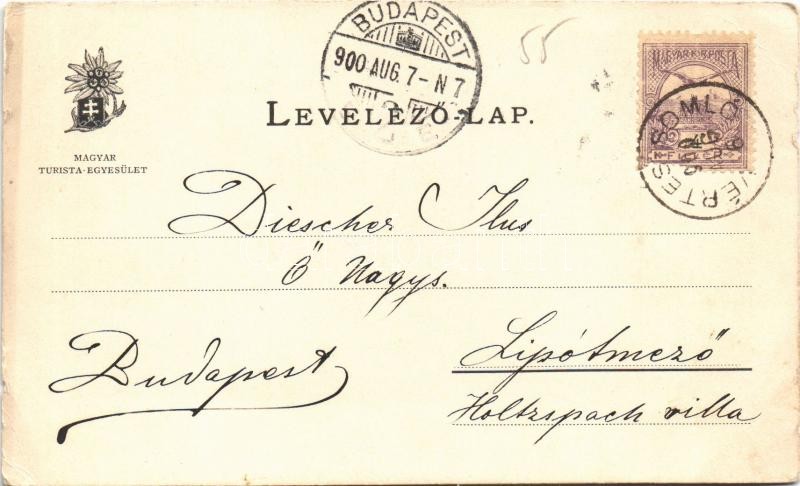 BUDAPEST
900 AUG. 7 - N 7
55
MAGYAR KIR. POSTA
VÉRTES SOMLÓ
LEVELEZŐ-LAP.
MAGYAR
TURISTA-EGYESÜLET
Diescher Ilus
Ő Nagys.
Budapest
Lipótmező
Holtzspach villa